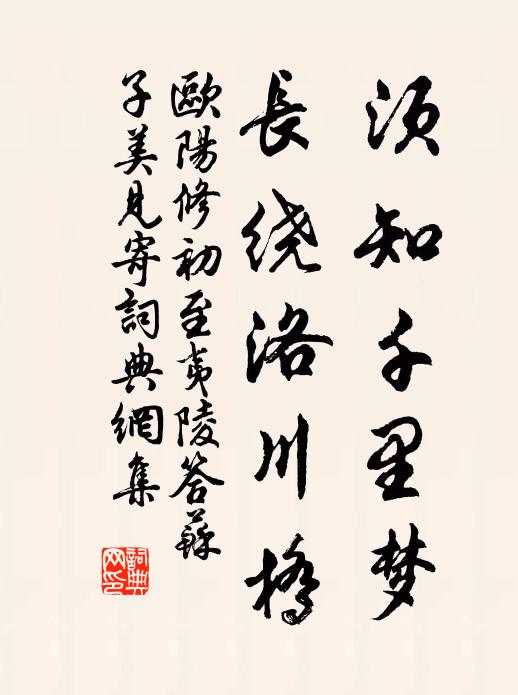 须知千里梦
長绕洛川橋
歐陽修初至夷陵答蘇
子美見寄詞典網集
詞典
网印